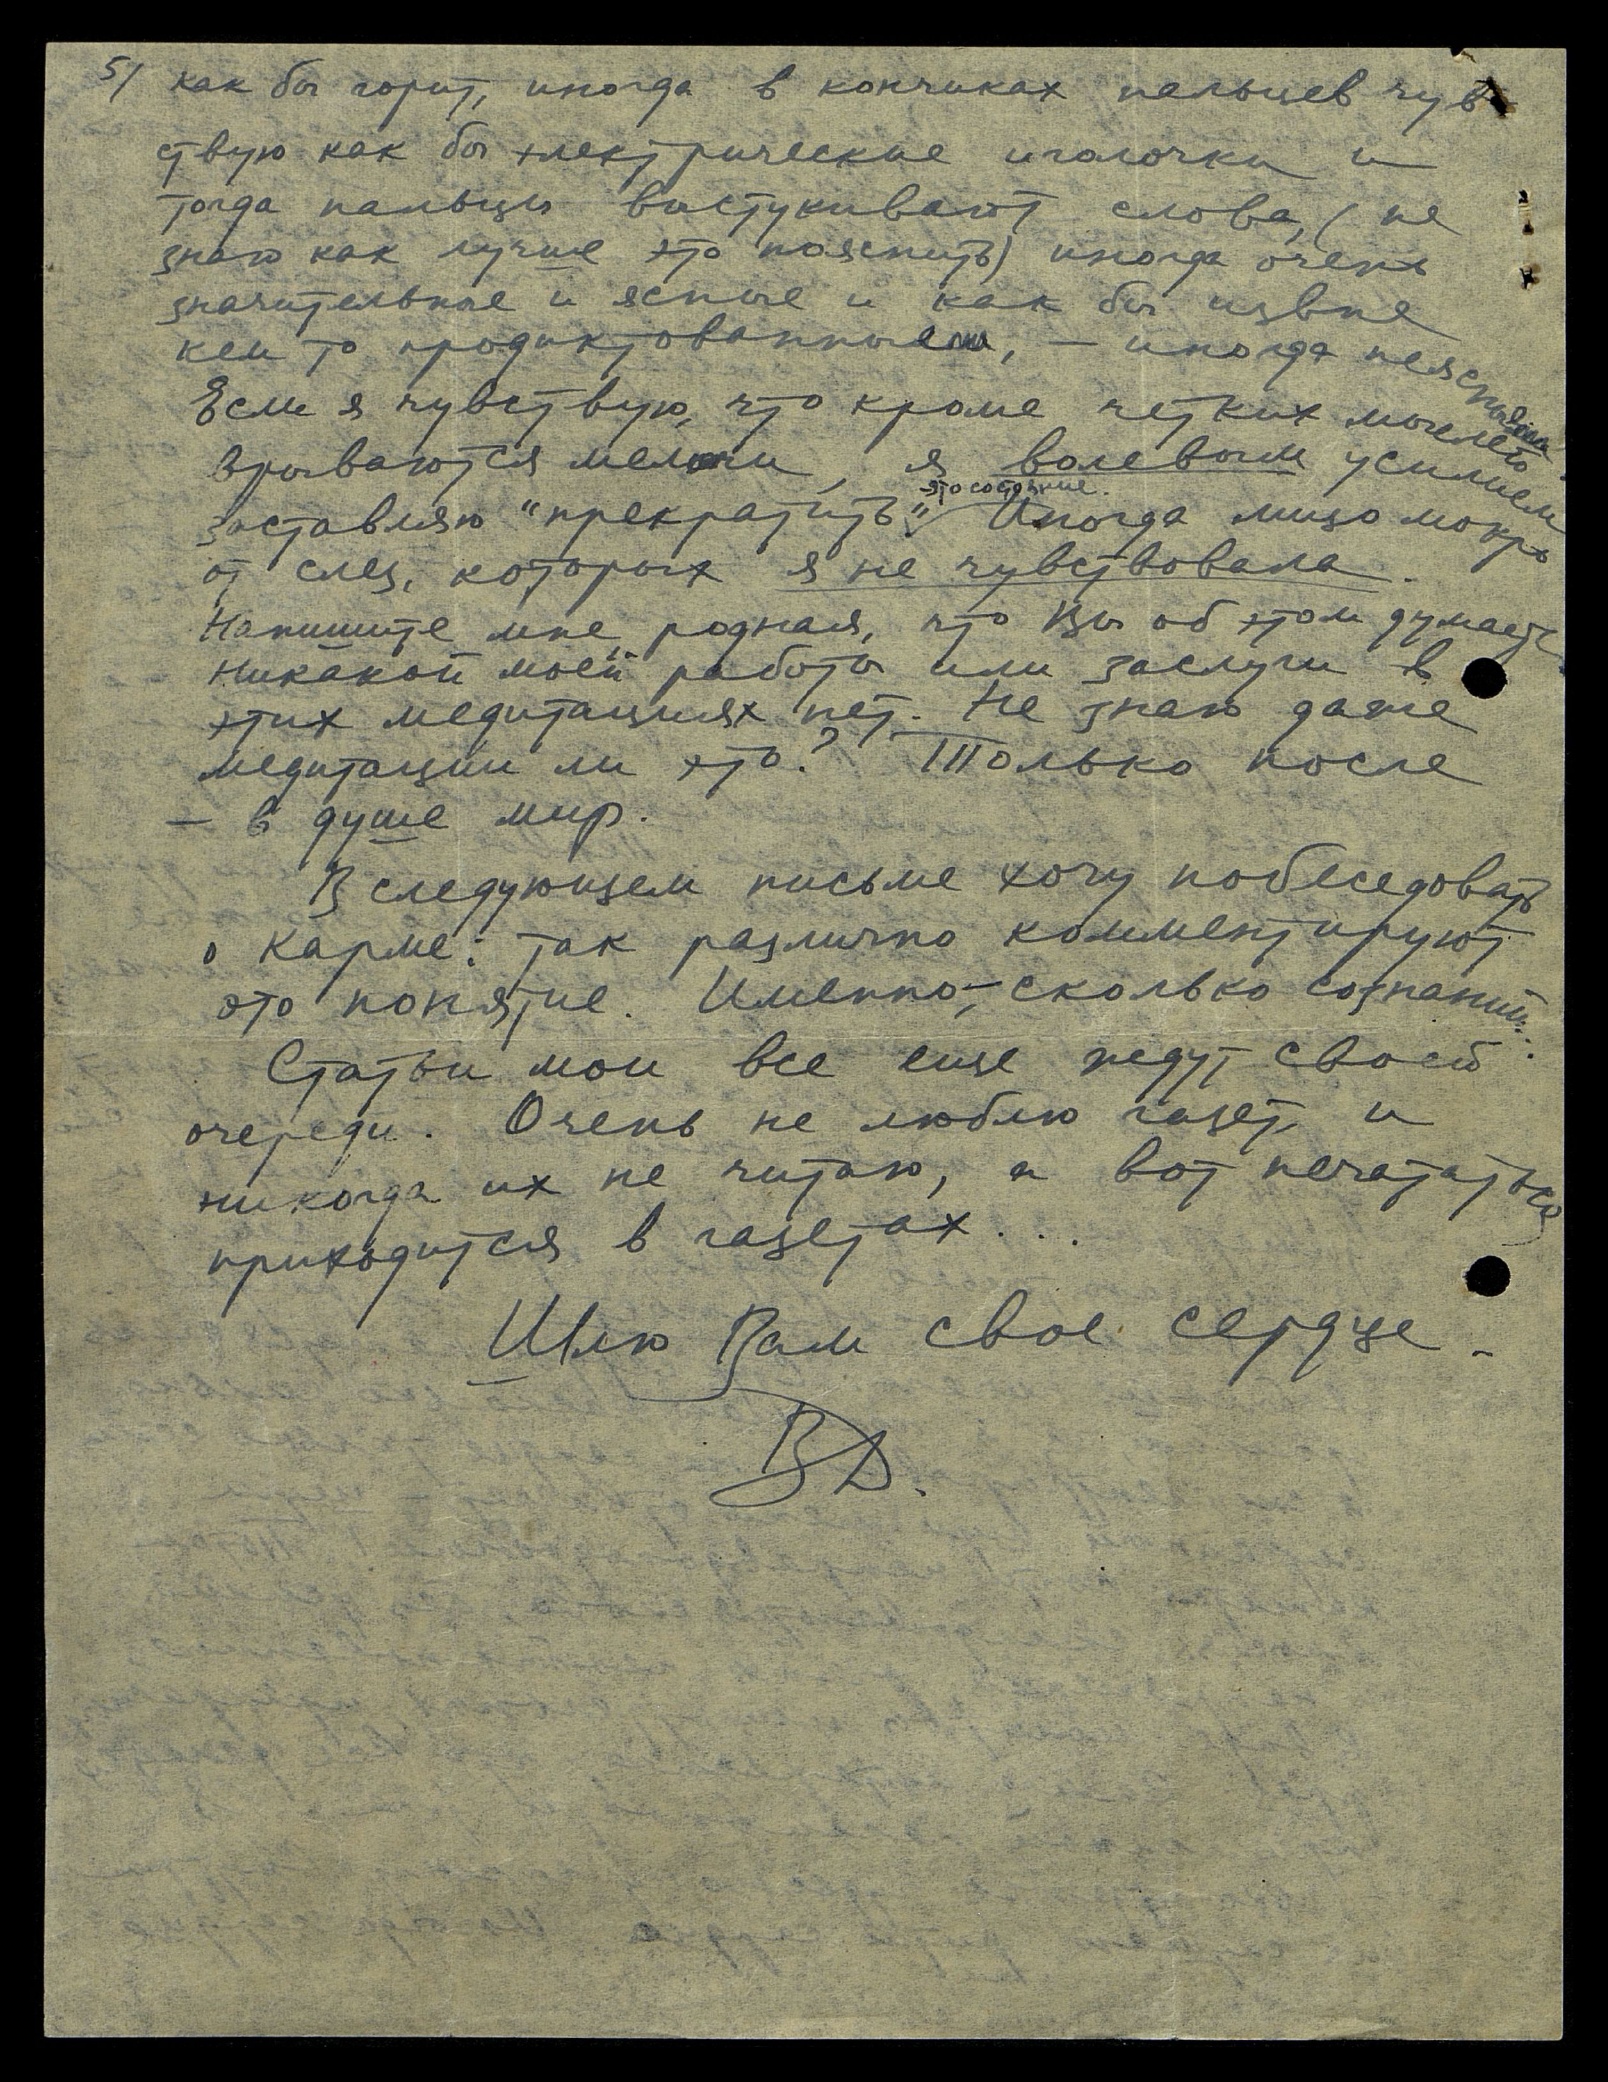 5/ как бы горит, иногда в кончиках пальцев чув
ствую как бы электрические иголочки и
тогда пальцы выстукивают слова, (не
знаю как лучше это пояснить) иногда очень
значительные и ясные и как бы извне
кем то продиктованными, – иногда неясными
Если я чувствую, что кроме четких мыслей
врываются мелочи, я волевым усилием
заставляю "прекратить" это состояние. Иногда лицо мокро
от слез, которых я не чувствовала.
Напишите мне, родная, что Вы об этом думаете.
Никакой моей работы или заслуги в
этих медитациях нет. Не знаю даже
медитации ли это? Только после
– в душе мир.
В следующем письме хочу побеседовать
о Карме: так различно комментируют
это понятие. Именно, – сколько сознаний...
Статьи мои все еще ждут своей
очереди. Очень не люблю газет, и
никогда их не читаю, а вот печататься
приходится в газетах...
Шлю Вам свое сердце –
ВД.